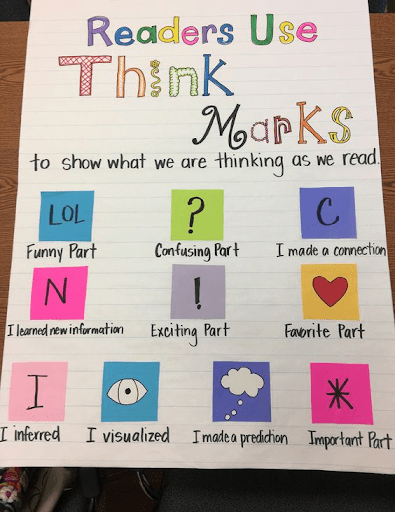 Readers Use
Think
Marks
to show what we are thinking as we read.
LOL ? C
Funny Part Confusing Part I made a connection
N !
I learned new information Exciting Part Favorite Part
I *
I inferred I visualized I made a prediction Important Part